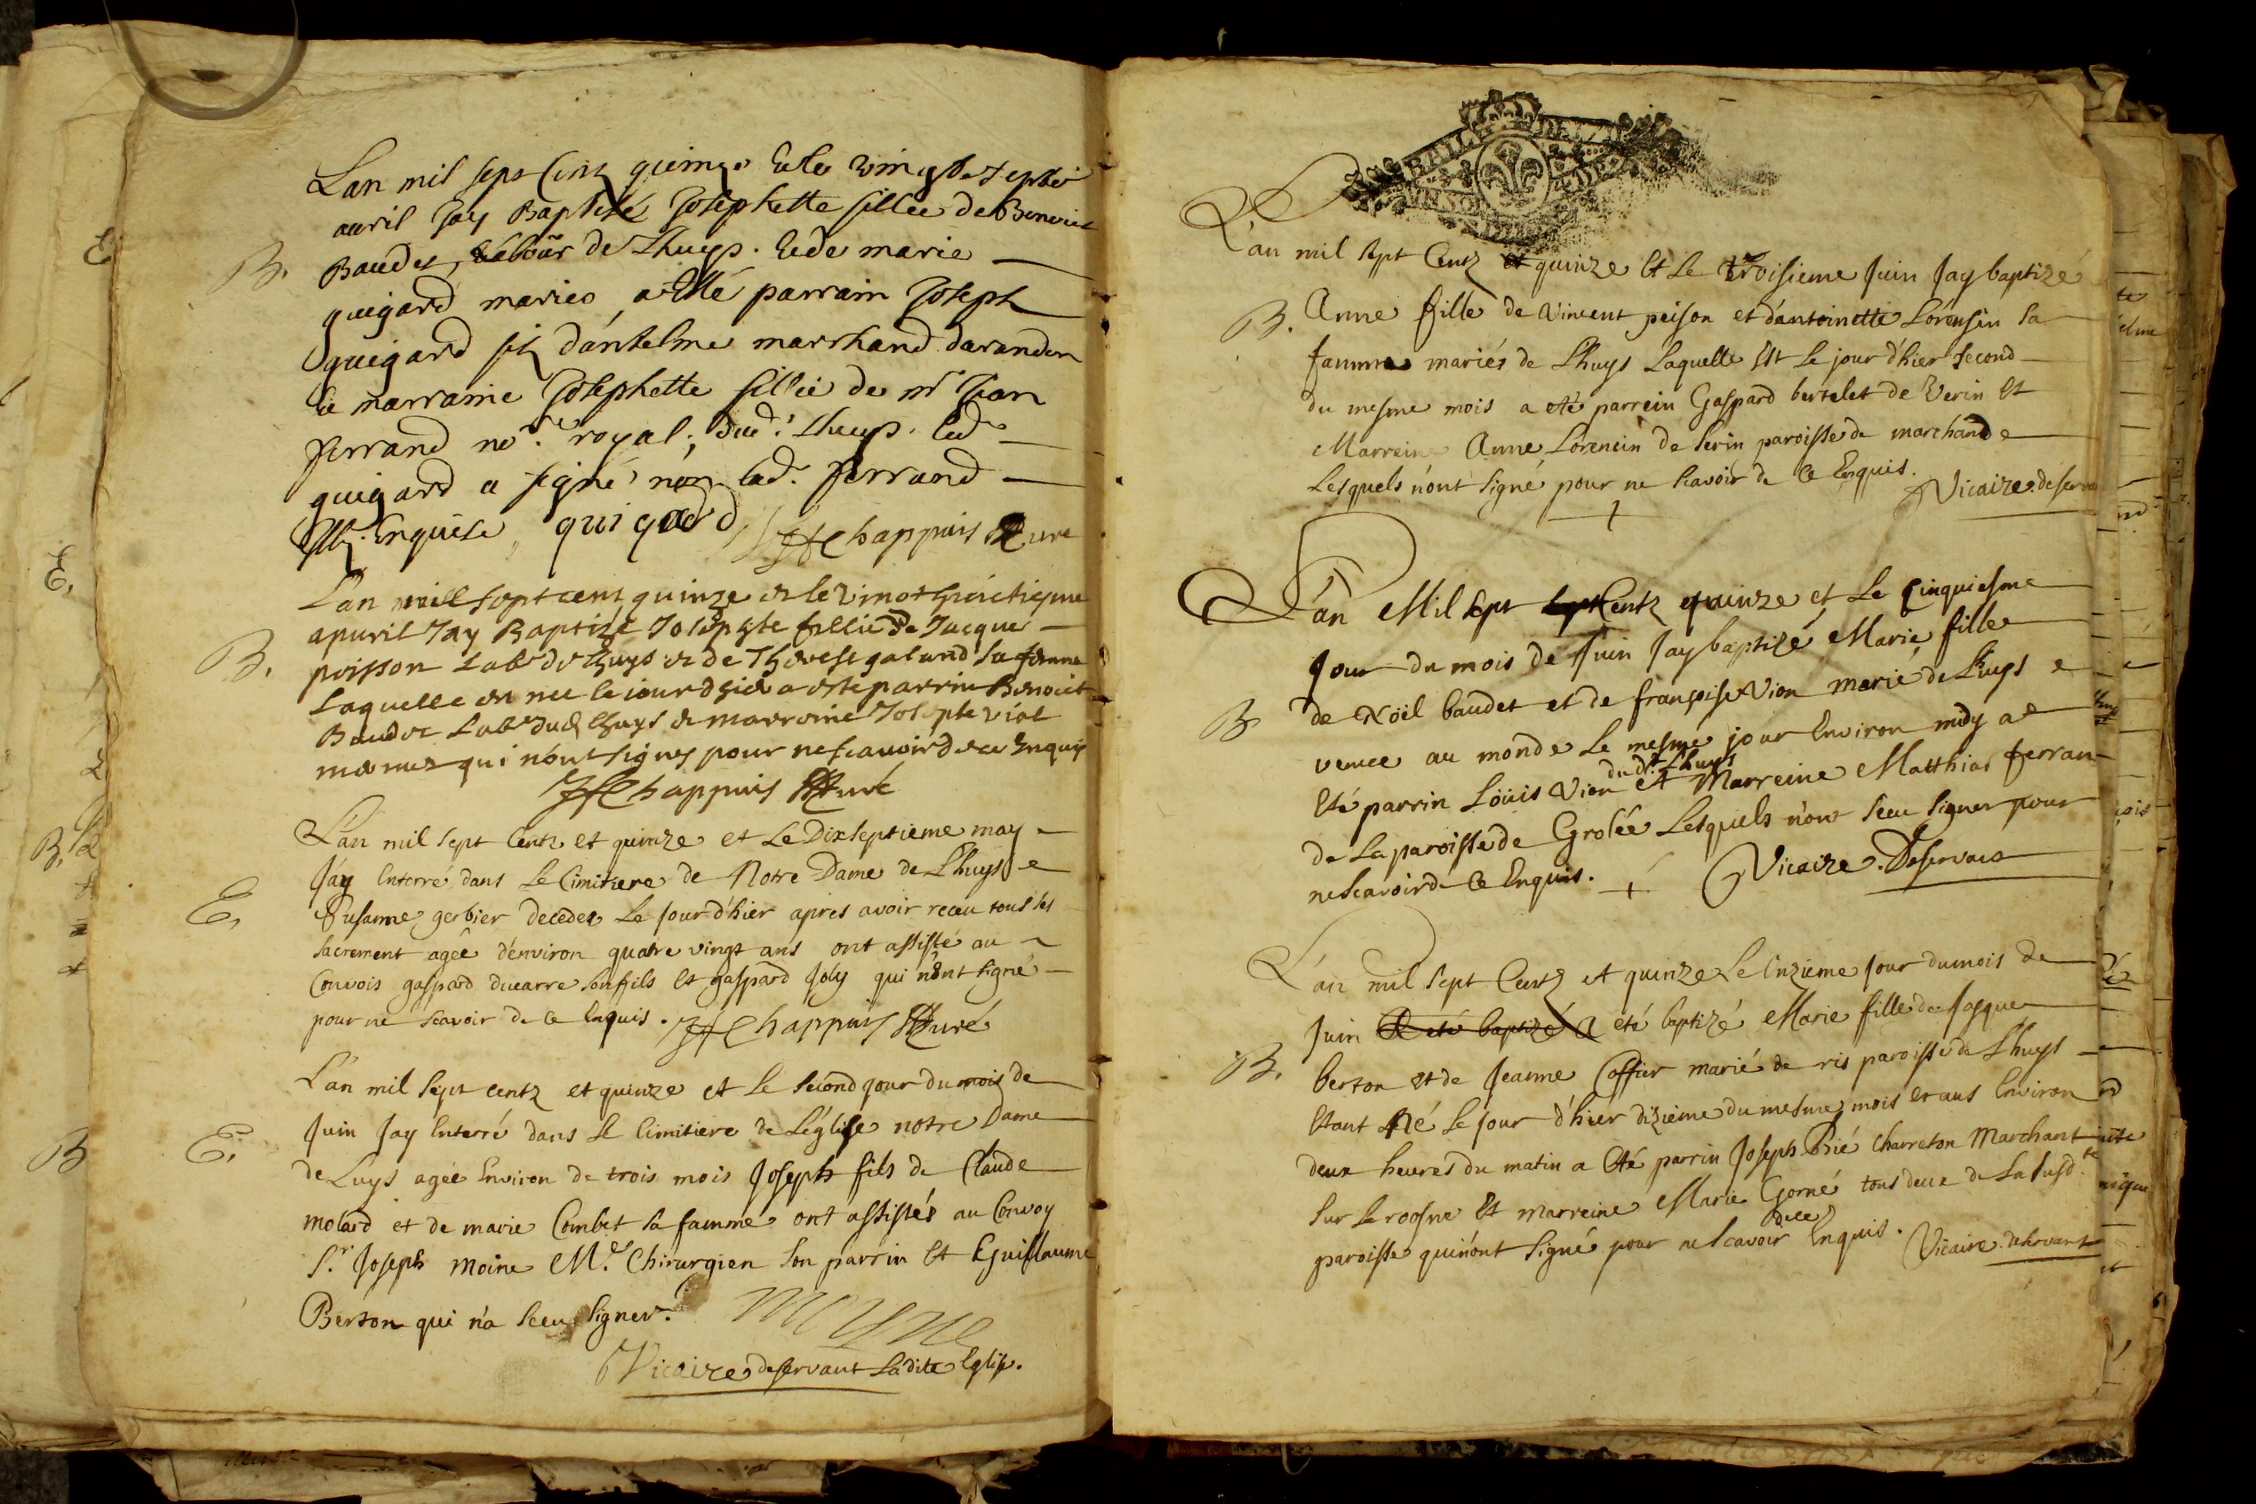 Lan mil sept Cent quinze & le vingt septe
avril Jay Baptisé Josephette fillie de Benoict
B. Baudet, labour de Lhuys. & de marie
guigard mariés, a esté parrain Joseph
guigard filz d'antelme marchand darandon
& marraine Josephette fillie de mr Jean
ferrand nore. royal, dud. Lhuys. led
guigard a signé non lad. ferrand
Enquise, guigard Chappuis Curé
Lan mill sept cent quinze & le vinot huictiesme
apuril Jay Baptizé Josephte fillie de Jacque
B. poisson Labr de Lhuys & de Therese galand sa femme
Laquelle est nee le iour dhier a este parrin Benoict
Baudet Labr dud Lhuys & marreine Josephte viol
qui nont signes pour ne scavoir de ce Enquis
Chappuis Curé
L'an mil sept Centz et quinze et Le Dixseptieme may
J'ay Enterré dans Le Cimitiere de Notre Dame de Lhuys
E. Susanne gerbier decedee Le jour d'hier apres avoir receu tous les
sacrement agée d'environ quatre vingt ans ont assisté au
Convois gaspard ducarre son fils Et gaspard Joly qui n'ont signé
pour ne scavoir de Ce Enquis. Chappuis Curé
L'an mil sept centz et quinze et Le second jour du mois de
E. Juin Jay Enterré dans Le Cimitiere de L'église notre Dame
de Luys agée Environ de trois mois Joseph fils de Claude
molard et de marie Combet sa famme ont assistés au Convoy
Sr. Joseph moine Me. Chirurgien son parrin Et Guillaume
Berton qui n'a sceu signer. Moyne
Vicaire deservant Ladite Eglise.
L'an mil sept Centz et quinze Et Le troisieme Juin Jay baptizé
B. Anne fille de Vincent peison et d'antoinette Lorensin sa
famme mariés de Lhuys Laquelle Est Le jour d'hier second
du mesme mois a eté parrein Gaspard bertelet de Verin Et
Marreine Anne Lorencin de serin paroisse de marchand
Lesquels n'ont signé pour ne scavoir de Ce Enquis. Vicaire deserva
L'an Mil sept sept Centz quinze et Le Cinquiesme
Jour du mois de Juin Jay baptizé Marie fille
B de Nöel baudet et de françoise Vion marié de Luys
venue au monde Le mesme jour Environ midy a
Eté parrin Loüis Vion du dt Lhuys et Marreine Matthias ferran
de La paroisse de Grolée Lesquels n'ont sceu signer pour
ne scavoir de Ce Enquis. Vicaire Deservant
L'an mil sept Centz et quinze Le Onzieme Jour du mois de
Juin a eté baptizé a eté baptizé Marie fille de Jasque
B. berton et de Jeanne Coffier marié de ris paroisse de Lhuys
Etant Né Le jour d'hier dizième du mesme mois et ans Environ
deux heures du matin a Eté parrin Joseph Charreton Marchant
sur Le roosne Et marreine Marie Gorné tous deux de La susdte
paroisse qui n'ont signé pour ne scavoir de ce Enquis. Vicaire deservant